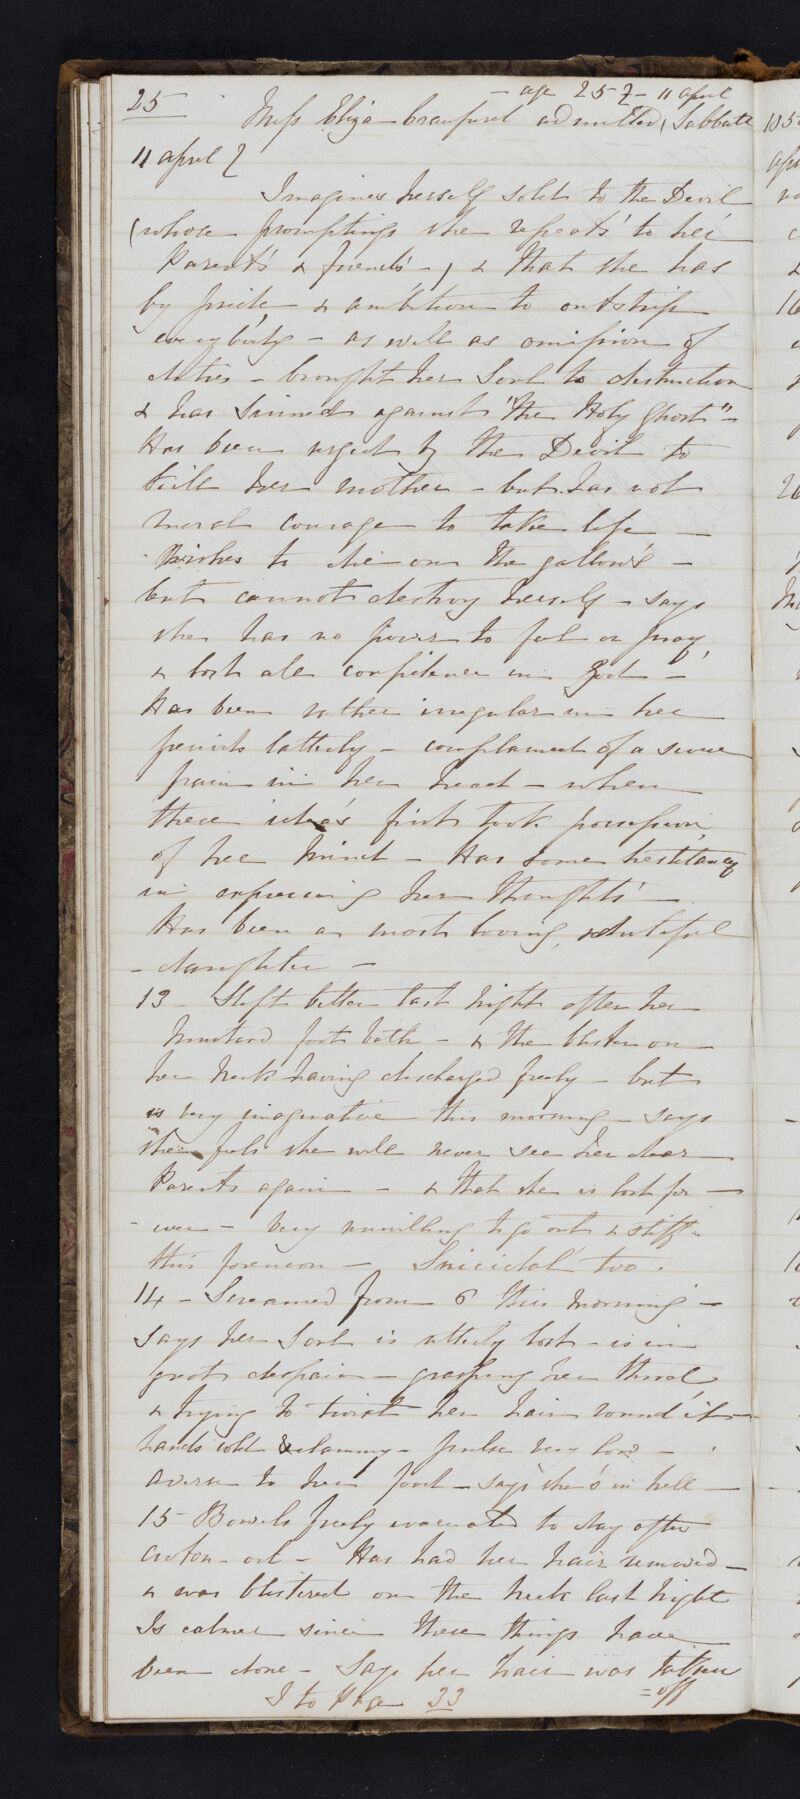 25 - age 25 - 11 april
Miss Eliza Craufurd admitted, Sabbath
11 april
Imagines herself sold to the Devil
(whose promptings she repeats to her
Parents & friends -) & that she has
by pride & ambition to outstrip
everybody - as well as omission of
duties - brought her Soul to destruction
& has sinned against "the Holy Ghost" -
Has been urged by the Devil to
kill her mother - but has not
moral courage to take life -
- Wishes to die on the gallows -
but cannot destroy herself - says
she has no power to feel or pray,
& lost all confidence in God -
Has been rather irregular in her
periods latterly - complained of a severe
pain in her head - when
these ideas first took possession
of her mind - Has some hesitancy
in expressing her thoughts -
Has been a most loving, & dutiful
- daughter -
13 - Slept better last night after her
mustard foot bath - & the blister on
her neck having discharged freely - but
is very imaginative this morning - says
she feels she will never see her dear
Parents again - & that she is lost for -
- ever - Very unwilling to go out & stiff -
this forenoon - Suicidal too.
14 - Screamed from 6 this morning -
says her Soul is utterly lost - is in
great despair - grasping her throat
& trying to twist her hair round it -
hands cold & clammy - pulse very low -
averse to her food - says she's in hell -
15 Bowels freely evacuated to day after
croton - oil - Has had her hair removed -
& was blistered on the neck last night
Is calmer since these things have
been done - Says her hair was taken
= off
to Page 33